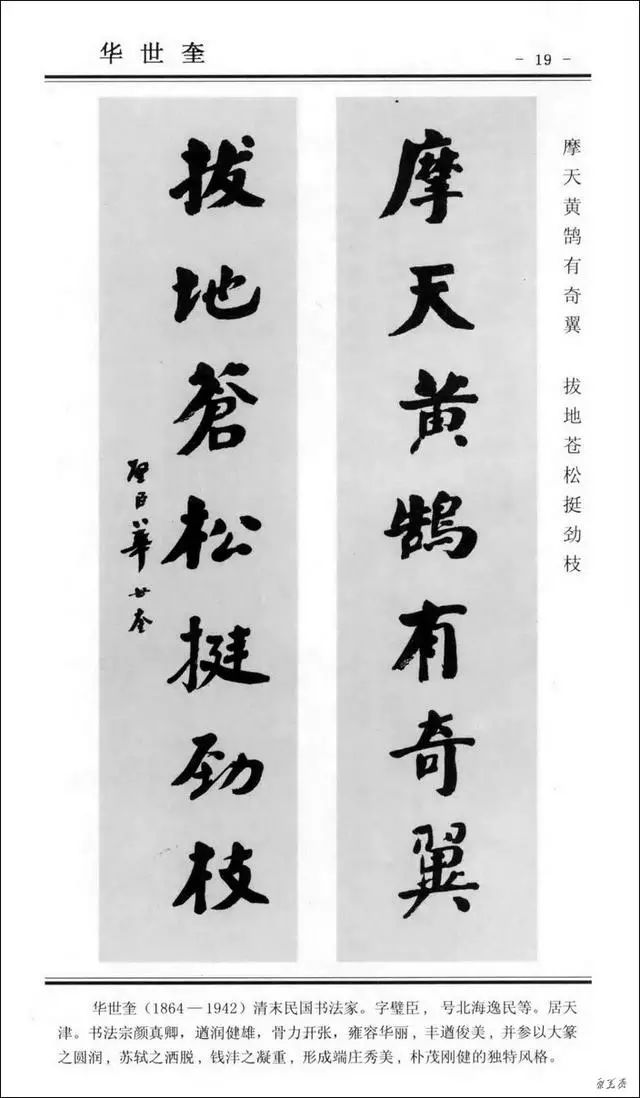 华世奎
- 19 -
摩天黄鹄有奇翼 拔地苍松挺劲枝
摩天黄鹄有奇翼
拔地蒼松挺劲枝
璧臣華世奎
华世奎(1864—1942)清末民国书法家。字璧臣,号北海逸民等。居天
津。书法宗颜真卿,遒润健雄,骨力开张,雍容华丽,丰遒俊美,并参以大篆
之圆润,苏轼之洒脱,钱沣之凝重,形成端庄秀美,朴茂刚健的独特风格。